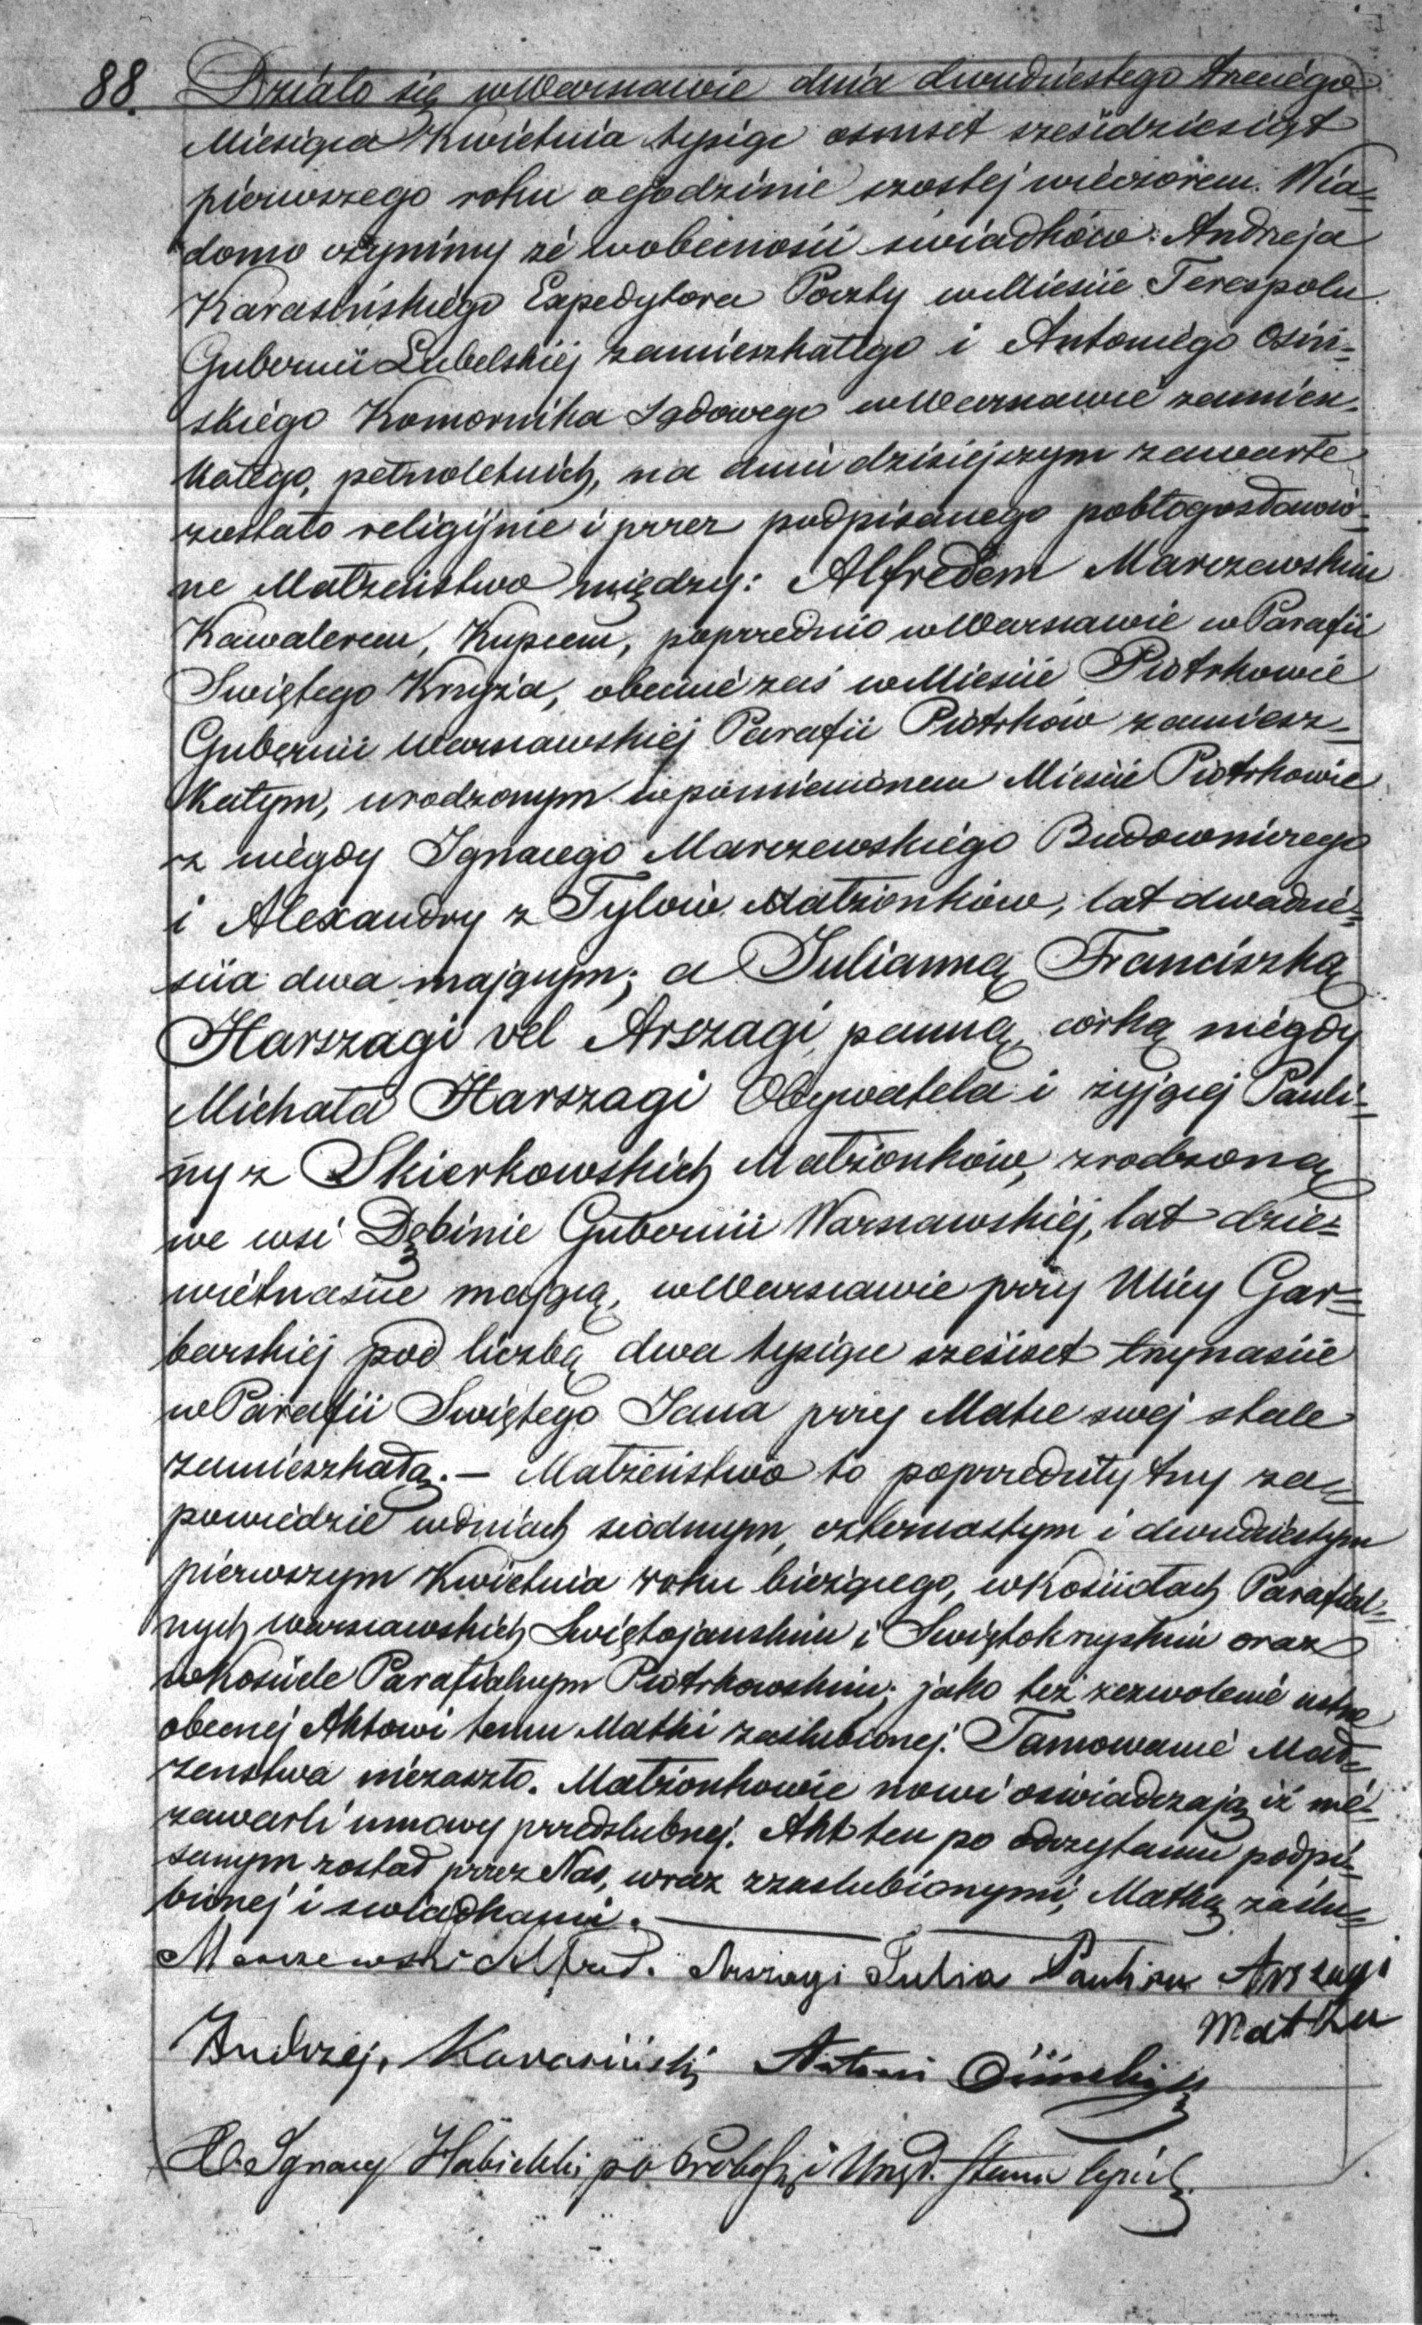 88. Działo się w Warszawie dnia dwudziestego trzeciego
Miesiąca Kwietnia tysiąc osmset sześćdziesiąt
pierwszego roku o godzinie szóstej wieczorem. Wia=
domo czynimy że w obecności świadków: Andrzeja
Karasińskiego Expedytora Poczty w Mieście Terespolu
Gubernii Lubelskiej zamieszkałego i Antoniego Osiń=
skiego Komornika Sądowego w Warszawie zamiesz=
kałego, pełnoletnich, na dniu dzisiejszym zawarte
zostało religijnie i przez podpisanego pobłogosławio=
ne Małżeństwo między: Alfredem Marczewskim
Kawalerem, Kupcem, poprzednio w Warszawie w Parafii
Świętego Krzyża, obecnie zaś w Mieście Piotrkowie
Gubernii Warszawskiej Parafii Piotrków zamiesz=
kałym, urodzonym w pomienionem Mieście Piotrkowie
z niegdy Ignacego Marczewskiego Budowniczego
i Alexandry z Tylów Małżonków, lat dwadzie=
ścia dwa mającym; a Julianną Franciszką
Harszagi vel Arszagi, panną, córką niegdy
Michała Harszagi Obywatela i żyjącej Pauli=
ny z Skierkowskich Małżonków, zrodzoną
we wsi Dębinie Gubernii Warszawskiej, lat dzie=
więtnaście mającą, w Warszawie przy Ulicy Gar=
barskiej pod liczbą dwa tysiące sześćset trzynaście
w Parafii Świętego Jana przy Matce swej stale
zamieszkałą. — Małżeństwo to poprzedziły trzy za=
powiedzie w dniach siódmym, czternastym i dwudziestym
pierwszym Kwietnia roku bieżącego, w Kościołach Parafial=
nych warszawskich Świętojańskim i Świętokrzyskim oraz
w Kościele Parafialnym Piotrkowskim; jako też zezwolenie ustne
obecnej Aktowi temu Matki zaślubionej. Tamowanie Mał=
żeństwa nie zaszło. Małżonkowie nowi oświadczają iż nie=
zawarli umowy przedślubnej. Akt ten po odczytaniu podpi=
sanym został przez Nas, wraz z zaślubionymi, Matką zaślu=
bionej i świadkami. —
Marczewski Alfred. Arszagi Julia Paulina Arszagi
Matka
Andrzej Karasiński Antoni Osiński
X. Ignacy po Probosz i Urzęd. Stanu Cywil.